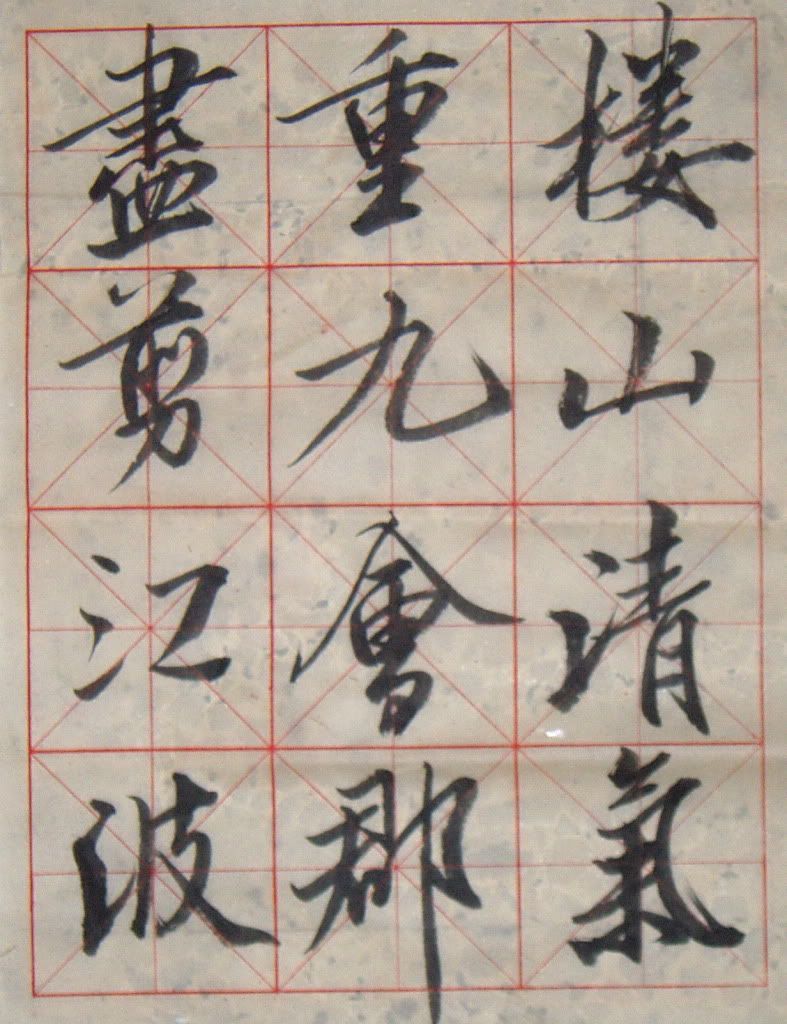 楼山清氣
重九會郡
盡剪江波